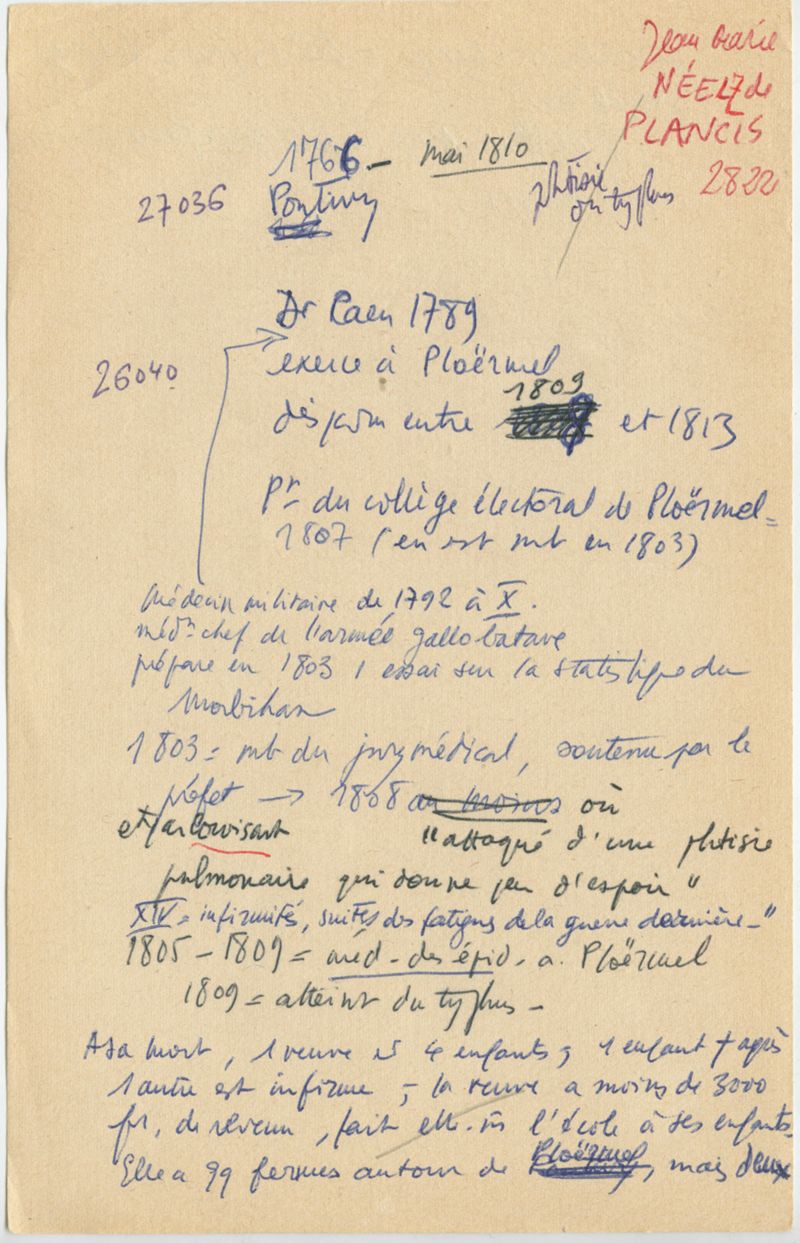 Jean Marie
NÉEL de
PLANCIS
2822
1766 - mai 1810
27036 Pontivy
phtisie
ou typhus
Dr Caen 1789
26040
exerce à Ploërmel
disparu entre 1809 et 1813
Pr du collège électoral de Ploërmel =
1807 (en est mb en 1803)
Médecin militaire de 1792 à X.
médn chef de l'armée gallobatave
prépare en 1803 1 essai sur la statistique du
Morbihan
1803 = mb du jury médical, soutenu par le
préfet → 1808 au moins où
et par Corvisart "attaqué d'une phtisie
pulmonaire qui donne peu d'espoir"
XIV = infirmités, suites des fatigues de la guerre dernière - "
1805 - 1809 = méd - des épid - à Ploërmel
1809 = atteint du typhus -
A sa mort, 1 veuve et 4 enfants ; 1 enfant † après
1 autre est infirme ; la veuve a moins de 3000
fr, de revenu, fait elle-m l'école à ses enfants.
Elle a qq fermes autour de Ploërmel, mais deux